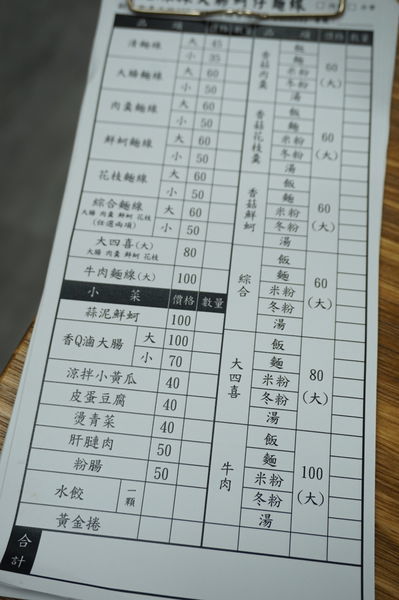 品 項 價格 數量
清麵線 大 45
小 35
大腸麵線 大 60
小 50
肉羹麵線 大 60
小 50
鮮蚵麵線 大 60
小 50
花枝麵線 大 60
小 50
綜合麵線
大腸 肉羹 鮮蚵 花枝
(任選兩項)
大 60
小 50
大四喜(大)
大腸 肉羹 鮮蚵 花枝
80
牛肉麵線(大) 100
小 菜 價格 數量
蒜泥鮮蚵 100
香Q滷大腸 大 100
小 70
涼拌小黃瓜 40
皮蛋豆腐 40
燙青菜 40
肝腱肉 50
粉腸 50
水餃 一顆
黃金捲
合計
品 項 價格 數量
香菇肉羹
飯
麵
米粉
冬粉
湯
60
(大)
香菇花枝羹
飯
麵
米粉
冬粉
湯
60
(大)
香菇鮮蚵
飯
麵
米粉
冬粉
湯
60
(大)
綜合
飯
麵
米粉
冬粉
湯
60
(大)
大四喜
飯
麵
米粉
冬粉
湯
80
(大)
牛肉
飯
麵
米粉
冬粉
湯
100
(大)